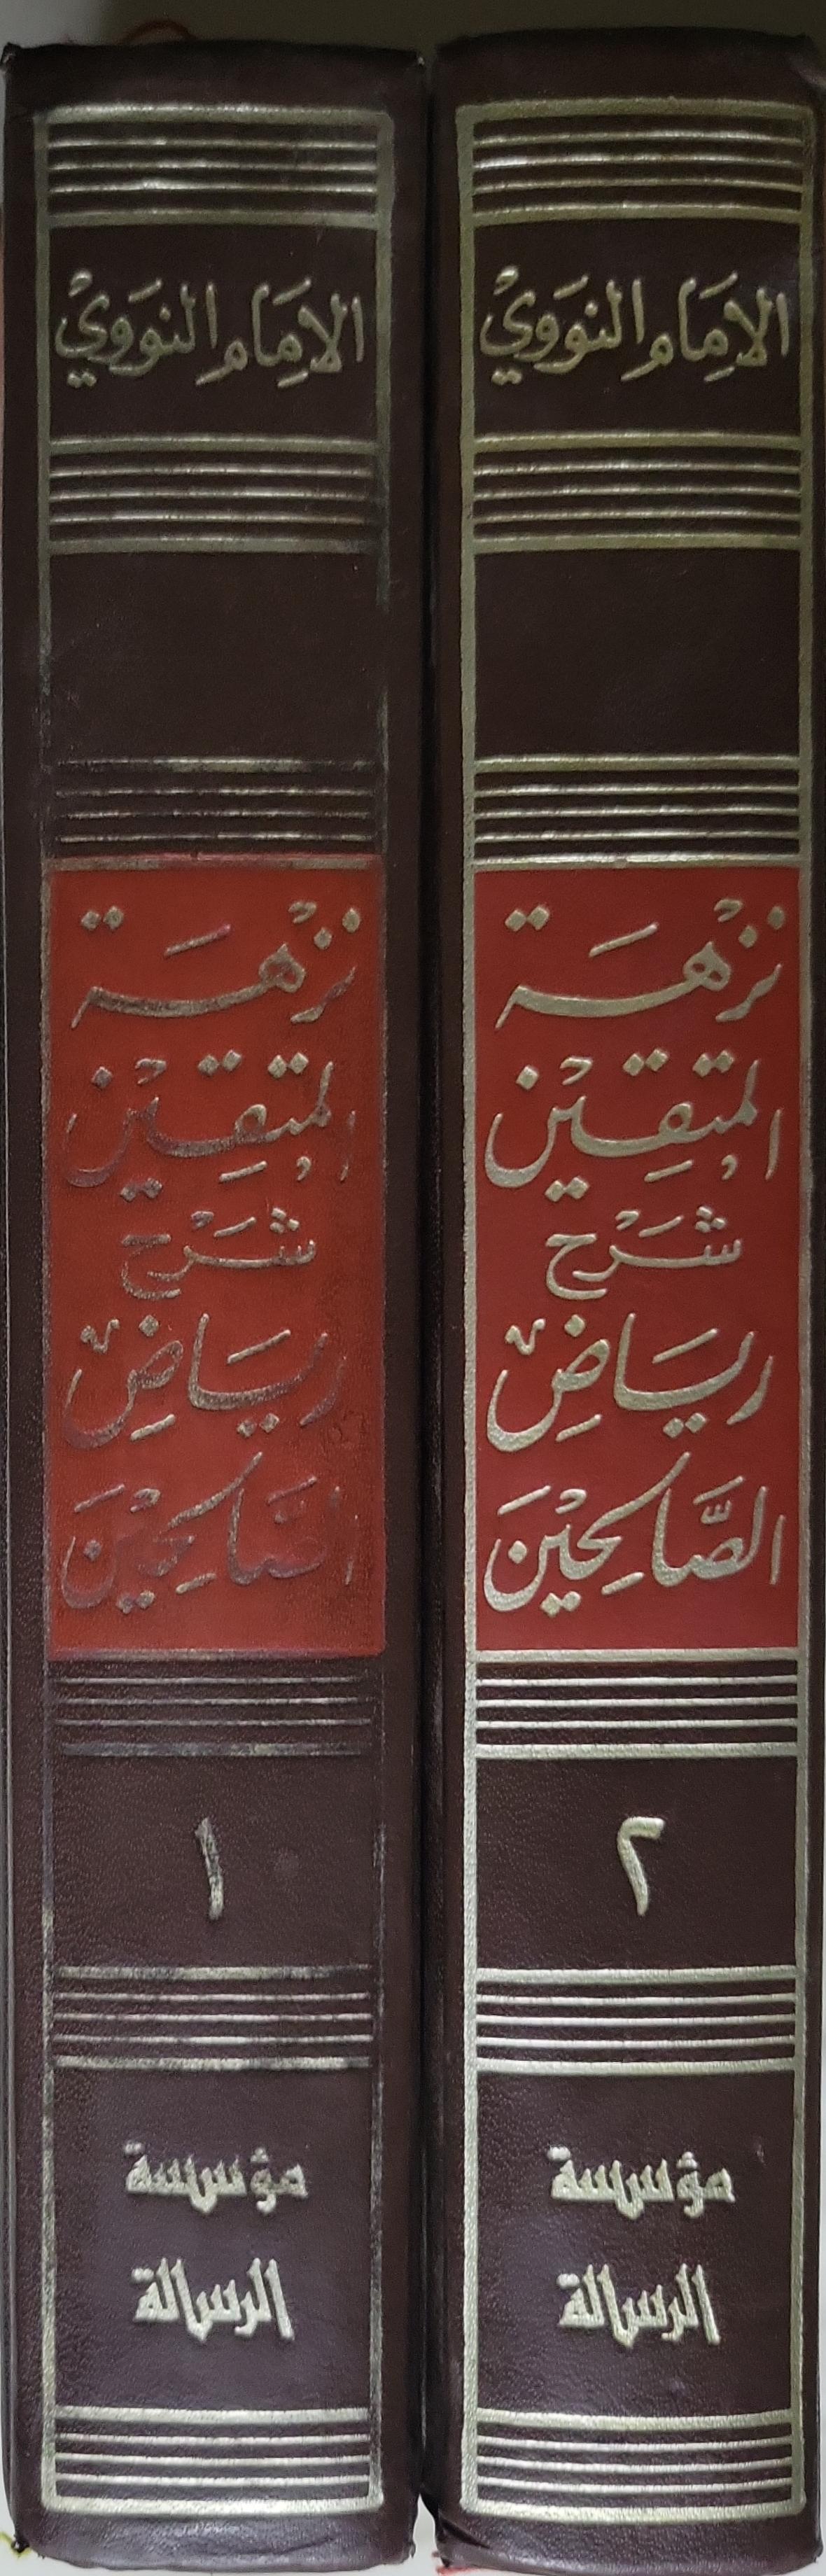 الإمَام النوَويْ
نزْهَة
المتّقِيْن
شَرْح
ريَاضِ
الصَّالِحِيْن
١
مؤسسة
الرسالة
الإمَام النوَويْ
نزْهَة
المتّقِيْن
شَرْح
ريَاضِ
الصَّالِحِيْنَ
٢
مؤسسة
الرسالة